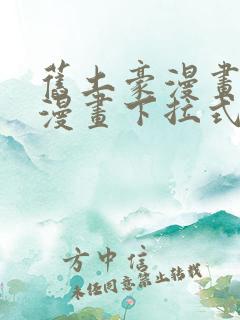 舊土豪漫畫
漫畫下拉式
方中信
未經同意禁止轉載